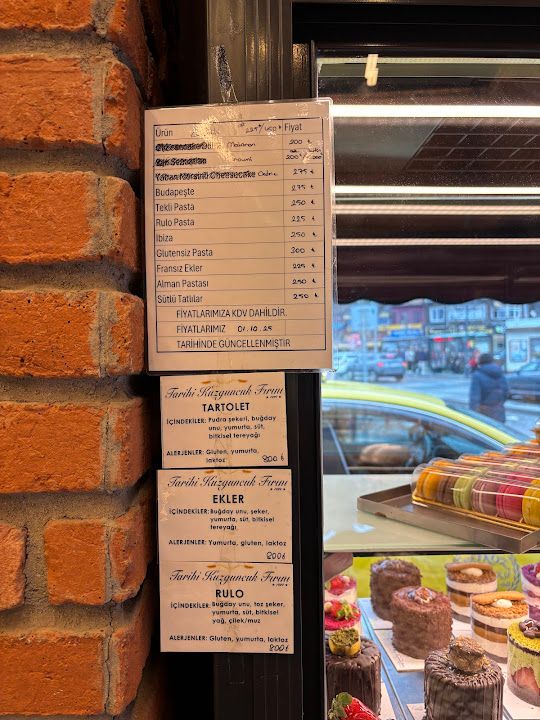 Ürün 225₺ Fiyat
Makaron 200 ₺
200₺
Cheesecake 275 ₺
Budapeşte 275 ₺
Tekli Pasta 250 ₺
Rulo Pasta 225 ₺
Ibiza 250 ₺
Glutensiz Pasta 300 ₺
Fransız Ekler 225 ₺
Alman Pastası 250 ₺
Sütlü Tatlılar 250 ₺
FİYATLARIMIZA KDV DAHİLDİR.
FİYATLARIMIZ 01.10.25
TARİHİNDE GÜNCELLENMİŞTİR
Tarihi Kuzguncuk Fırını
TARTOLET
İÇİNDEKİLER: Pudra şekeri, buğday
unu, yumurta, süt,
bitkisel tereyağı
ALERJENLER: Gluten, yumurta,
laktoz 800₺
Tarihi Kuzguncuk Fırını
EKLER
İÇİNDEKİLER: Buğday unu, şeker,
yumurta, süt, bitkisel
tereyağı
ALERJENLER: Yumurta, gluten, laktoz
800₺
Tarihi Kuzguncuk Fırını
RULO
İÇİNDEKİLER: Buğday unu, toz şeker,
yumurta, süt, bitkisel
yağ, çilek/muz
ALERJENLER: Gluten, yumurta, laktoz
800₺